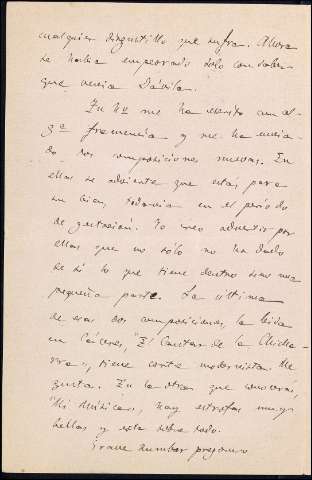 cualquier disgustillo que sufra. Ahora
se había empeorado solo con saber
que venía Dávila.
Tu hº me ha escrito con al-
gª frecuencia y me ha envia-
do dos composiciones nuevas. En
ellas se advierte que está, para
su bien, todavía en el periodo
de gestación. Yo creo advertir por
ellas que no sólo no ha dado
de sí lo que tiene dentro sino una
pequeña parte. La última
de esas dos composiciones, la leída
en Cáceres, "El Cantar de la Chicha-
rra", tiene corte modernista. Me
gusta. En la otra que conocerás,
"Mi música", hay estrofas muy
bellas y esta sobre todo.